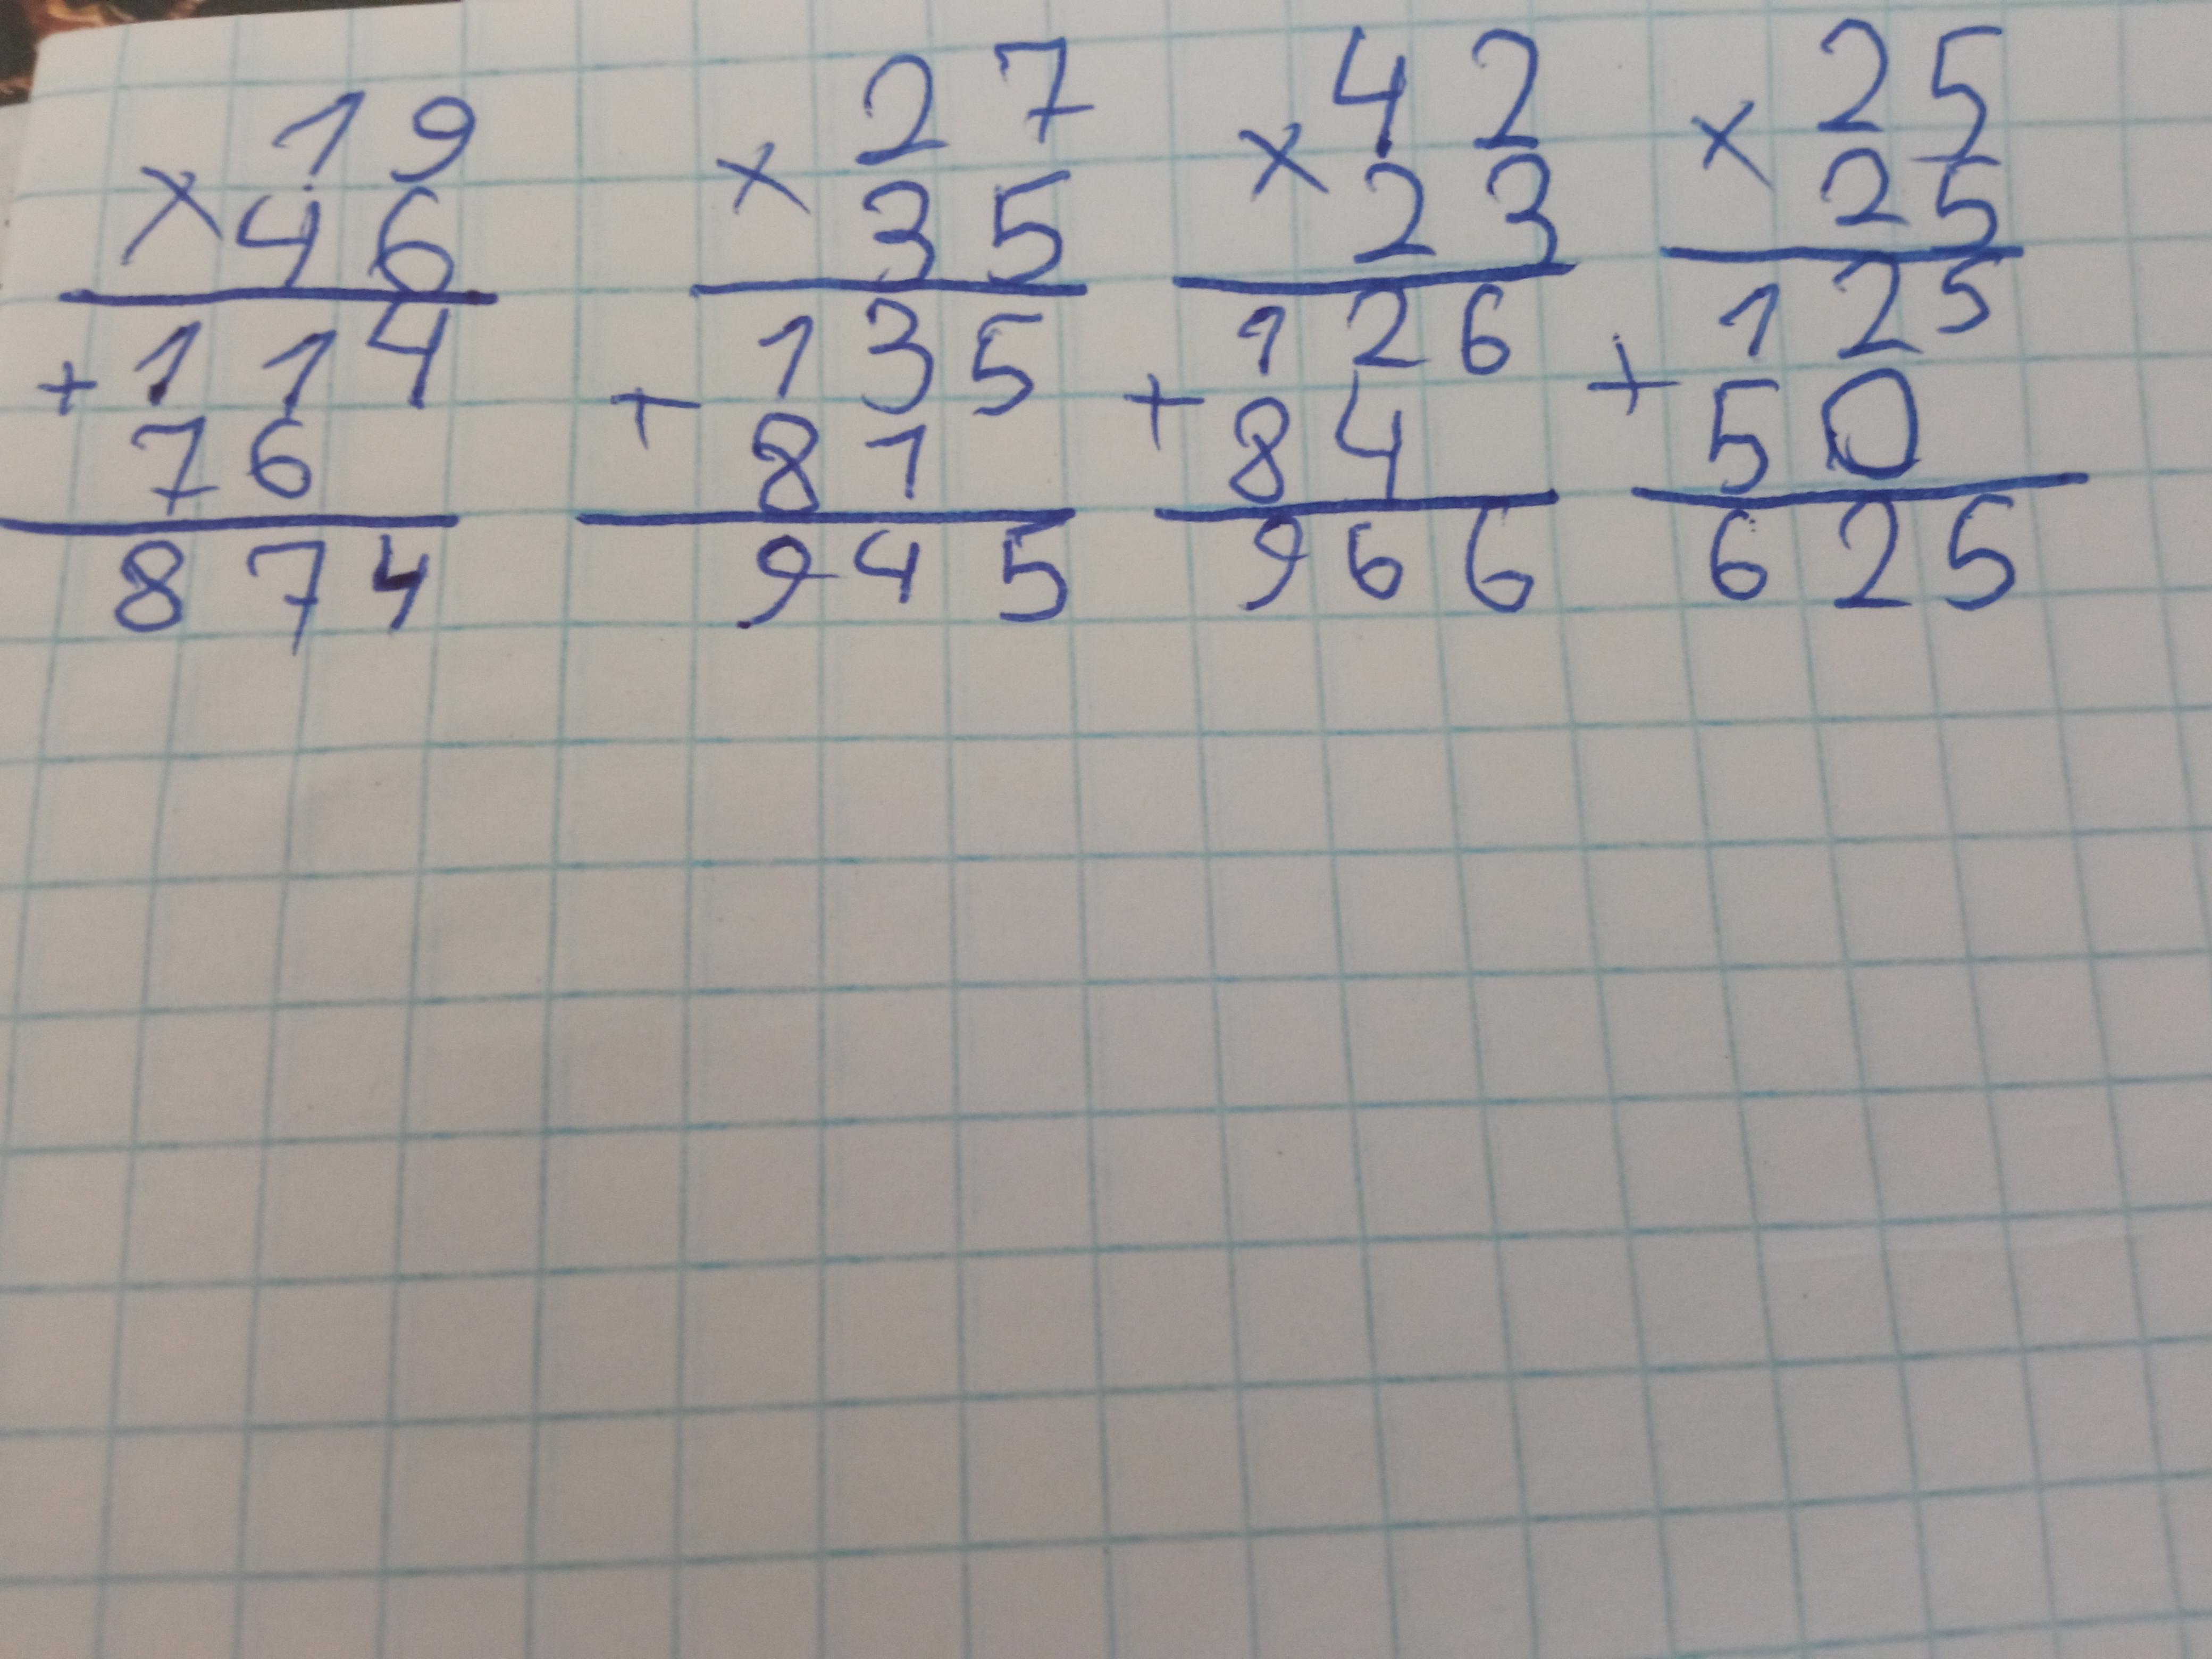 19 27 42 25
× × × ×
46 35 23 25
114 135 126 125
+ + + +
76 81 84 50
874 945 966 625